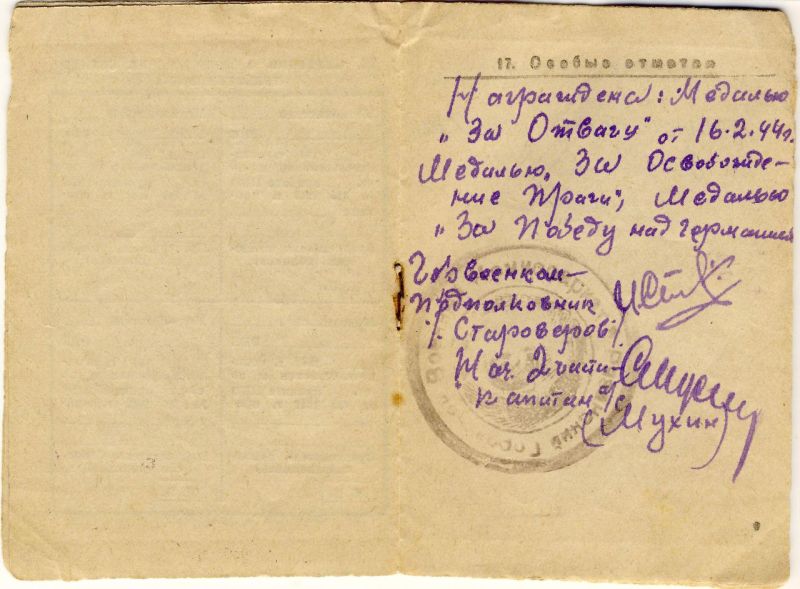 17. Особые отметки
Награждена: Медалью
„За Отвагу" от 16.2.44г.
Медалью „За Освобожде-
ние Праги", Медалью
„За Победу над Германией
Горвоенком-
Подполковник
/. Староверов/
Нач. 2 части-
капитан а/с
(Мухин)
9